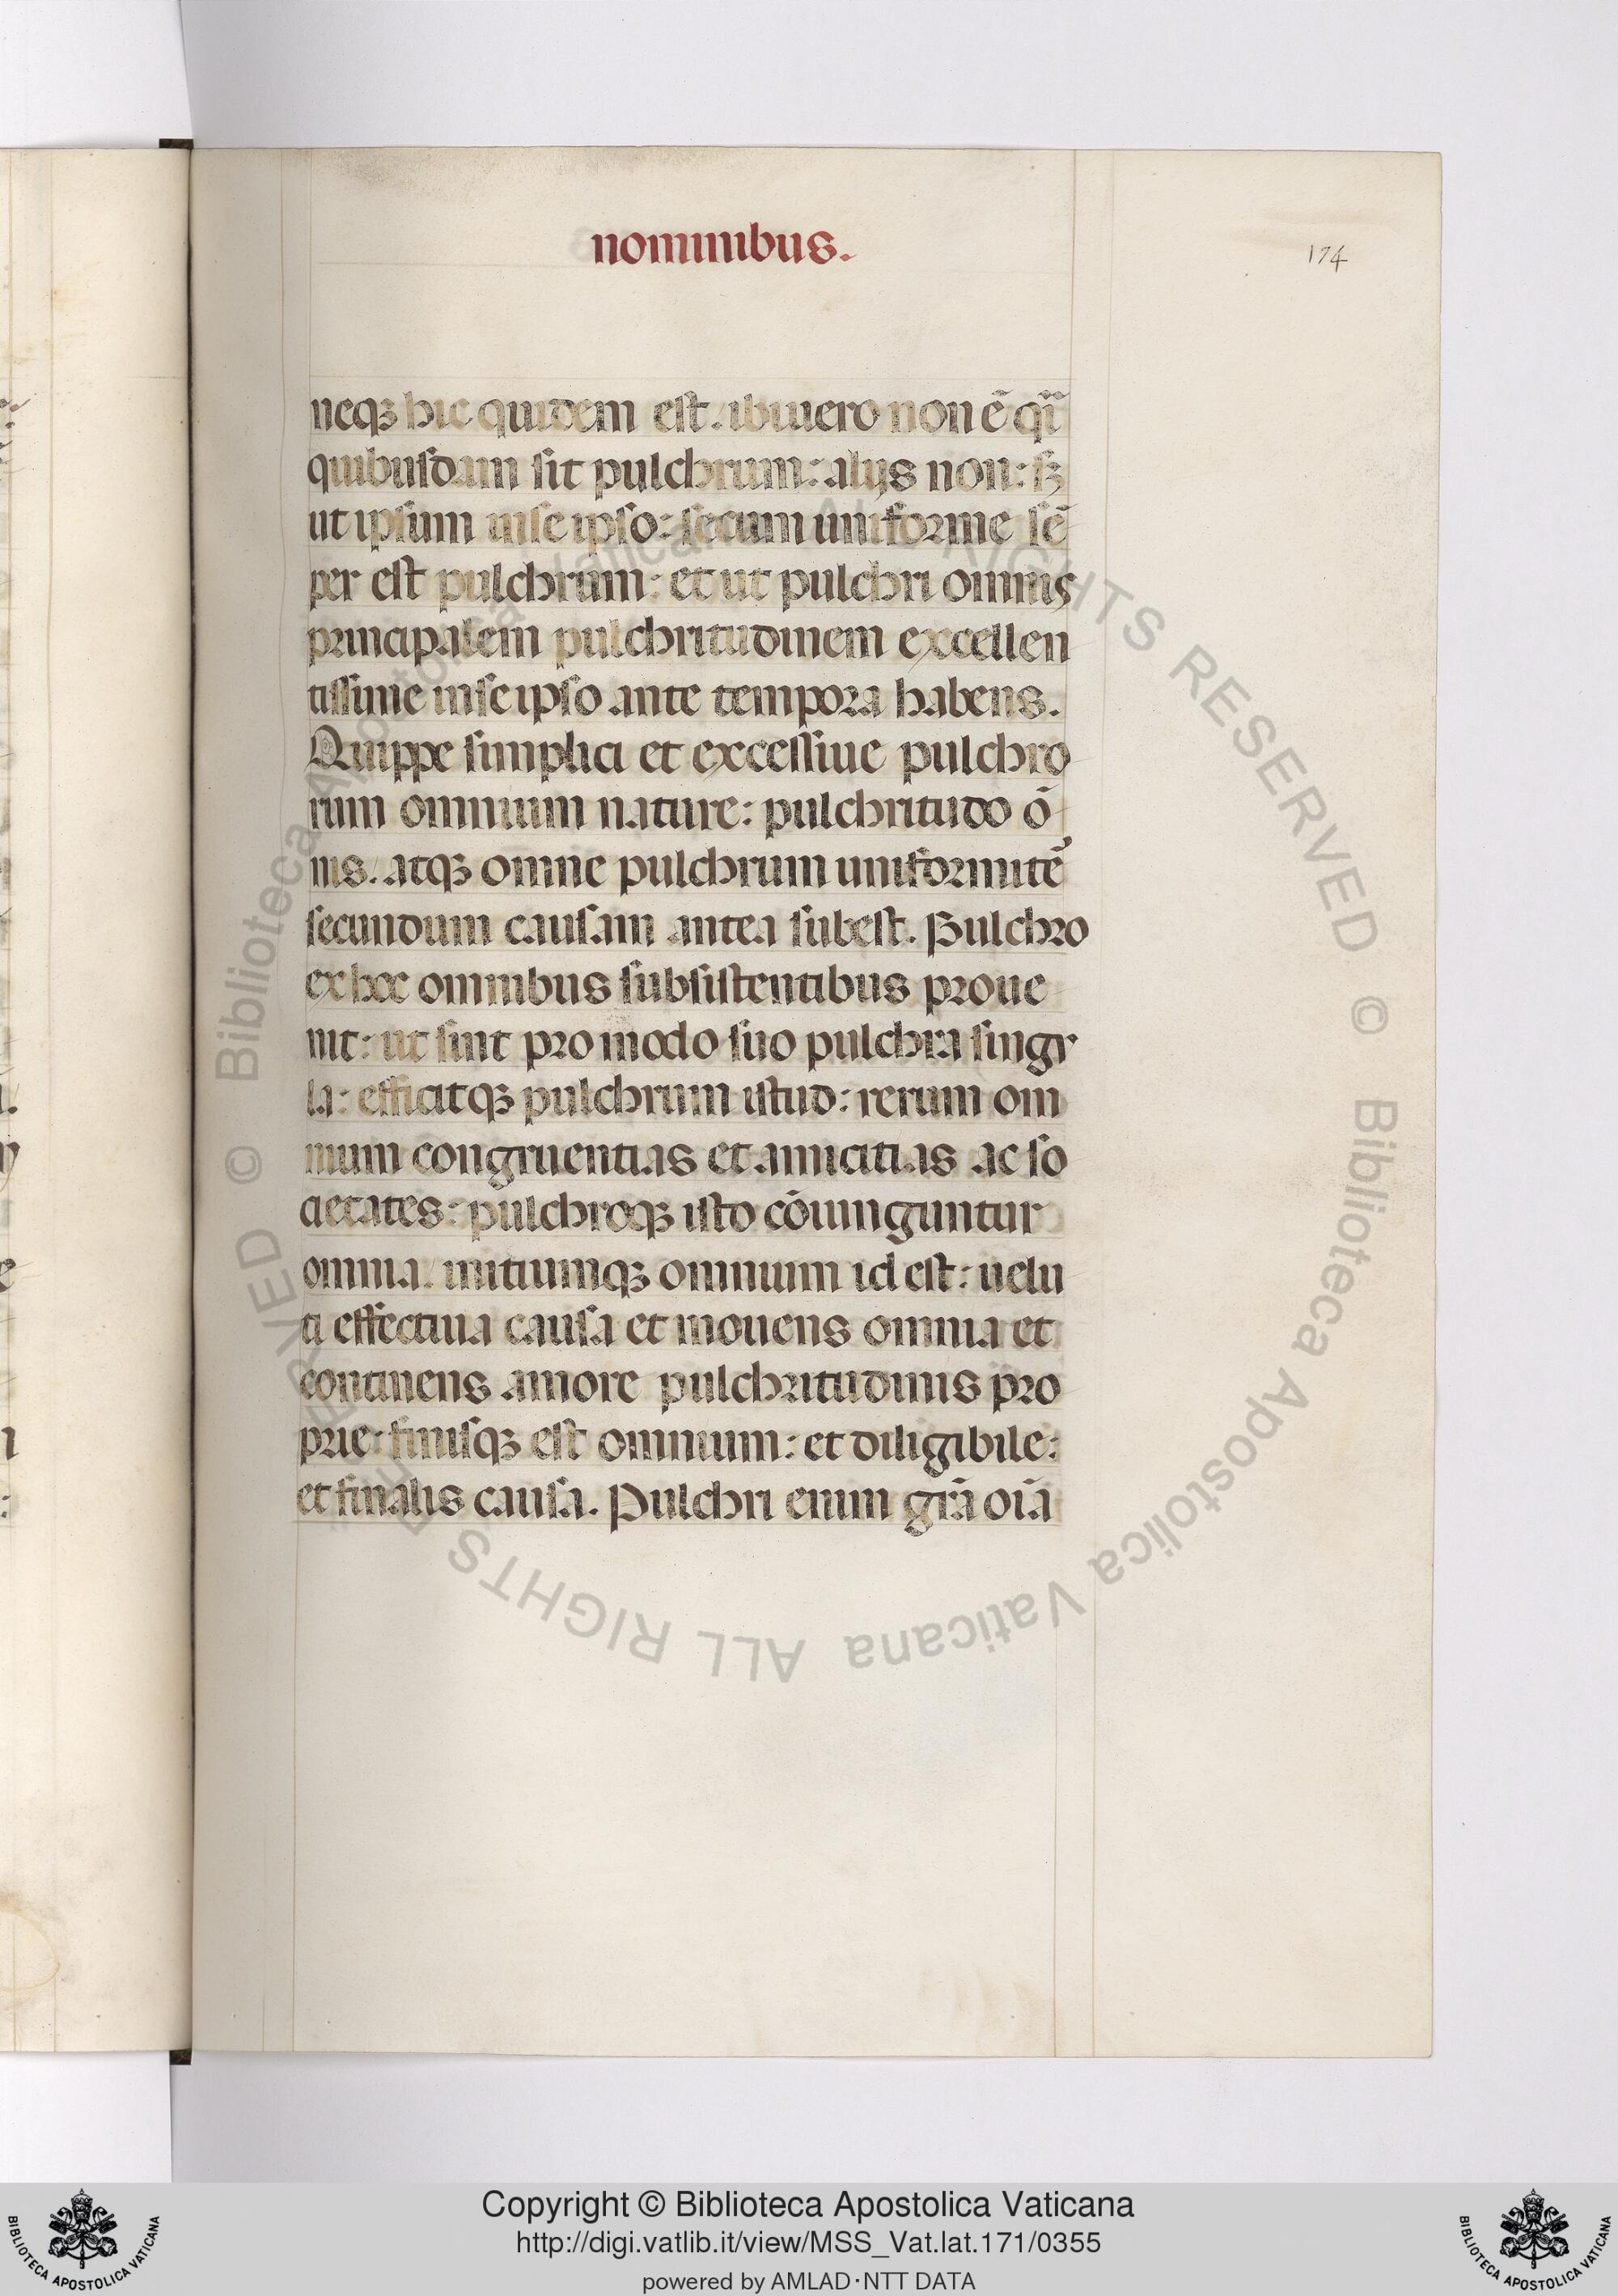 nominibus.
174
neqȝ hic quidem est. ibi uero non ē qͣi
quibusdam sit pulchrum: alijs non: sȝ
ut ipsum in se ipso: secum uniforme sē
per est pulchrum: et ut pulchri omnis
principalem pulchritudinem excellen
tissime in se ipso ante tempora habens.
Quippe simplici et excessiue pulchro
rum omnium nature: pulchritudo ō
nis. atqȝ omne pulchrum uniformitẽ
secundum causam antea subest. Pulchro
ex hoc omnibus subsistentibus proue
nit: ut sint pro modo suo pulchra singu
la: efficitqȝ pulchrum istud: rerum om
nium congruentias et amicitias ac so
cietates: pulchroqȝ isto cōiunguntur
omnia. initiumqȝ omnium id est: uelu
ti effectiua causa et mouens omnia et
continens amore pulchritudinis pro
prie: finisqȝ est omnium: et diligibile:
et finalis causa. Pulchri enim grā oīa
Copyright © Biblioteca Apostolica Vaticana
http://digi.vatlib.it/view/MSS_Vat.lat.171/0355
powered by AMLAD·NTT DATA